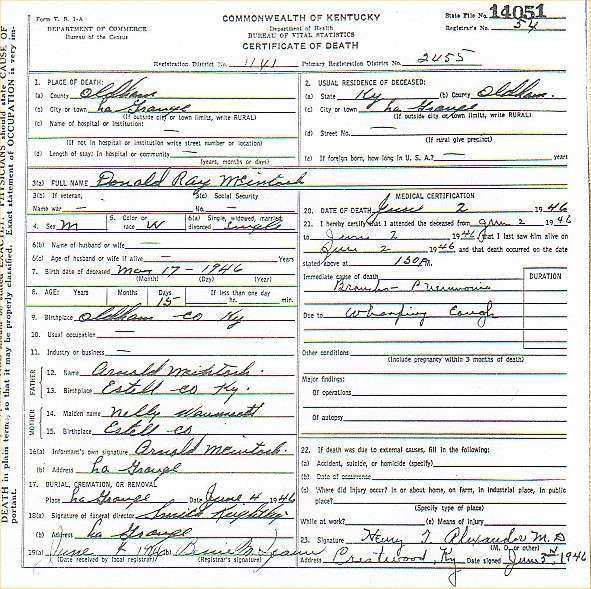 DEATH in plain terms, so that it may be properly classified. Exact statement of OCCUPATION is very important.
PHYSICIANS should state CAUSE OF
Form V. S. 1-A
DEPARTMENT OF COMMERCE
Bureau of the Census
COMMONWEALTH OF KENTUCKY
Department of Health
BUREAU OF VITAL STATISTICS
CERTIFICATE OF DEATH
State File No. 14051
Registrar's No. 54
Registration District No. 1141 Primary Registration District No. 2455
1. PLACE OF DEATH:
(a) County Oldham
(b) City or town La Grange
(If outside city or town limits, write RURAL)
(c) Name of hospital or institution:
(If not in hospital or institution write street number or location)
(d) Length of stay: in hospital or community
(years, months or days)
2. USUAL RESIDENCE OF DECEASED:
(a) State Ky (b) County Oldham.
(c) City or town La Grange
(If outside city or town limits, write RURAL)
(d) Street No.
(If rural give precinct)
(e) If foreign born, how long in U. S. A.? years
3(a) FULL NAME Donald Ray McIntosh
3(b) If veteran,
Name war —
3(c) Social Security
No. —
4. Sex M
5. Color or
race W
6(a) Single, widowed, married,
divorced Single
6(b) Name of husband or wife —
6(c) Age of husband or wife if alive — Years
7. Birth date of deceased May 17 - 1946
(Month) (Day) (Year)
8. AGE: Years Months Days If less than one day
15 hr. min.
9. Birthplace Oldham Co Ky
10. Usual occupation —
11. Industry or business —
FATHER
12. Name Arnold McIntosh.
13. Birthplace Estell Co Ky.
MOTHER
14. Maiden name Nelly
15. Birthplace Estell Co
16(a) Informant's own signature Arnold McIntosh.
(b) Address La Grange
17. BURIAL, CREMATION, OR REMOVAL
Place La Grange Date June 4, 1946
18(a) Signature of funeral director Smith
(b) Address La Grange
19(a) June
(Date received by local registrar) (Registrar's signature)
MEDICAL CERTIFICATION
20. DATE OF DEATH June 2 1946
21. I hereby certify that I attended the deceased from June 2 1946
to June 2 1946, that I last saw him alive on
June 2 1946 and that death occurred on the date
stated above at 130 P.M.
Immediate cause of death DURATION
Broncho-Pneumonia
Due to Whooping Cough
Other conditions
(Include pregnancy within 3 months of death)
Major findings:
Of operations
Of autopsy
22. If death was due to external causes, fill in the following:
(a) Accident, suicide, or homicide (specify)
(b) Date of occurrence
(c) Where did injury occur? in or about home, on farm, in industrial place, in public
place?
(Specify type of place)
While at work? (e) Means of injury
23. Signature Henry T. Alexander M. D
(M. D. or other)
Address Crestwood, Ky Date signed June 3rd, 1946